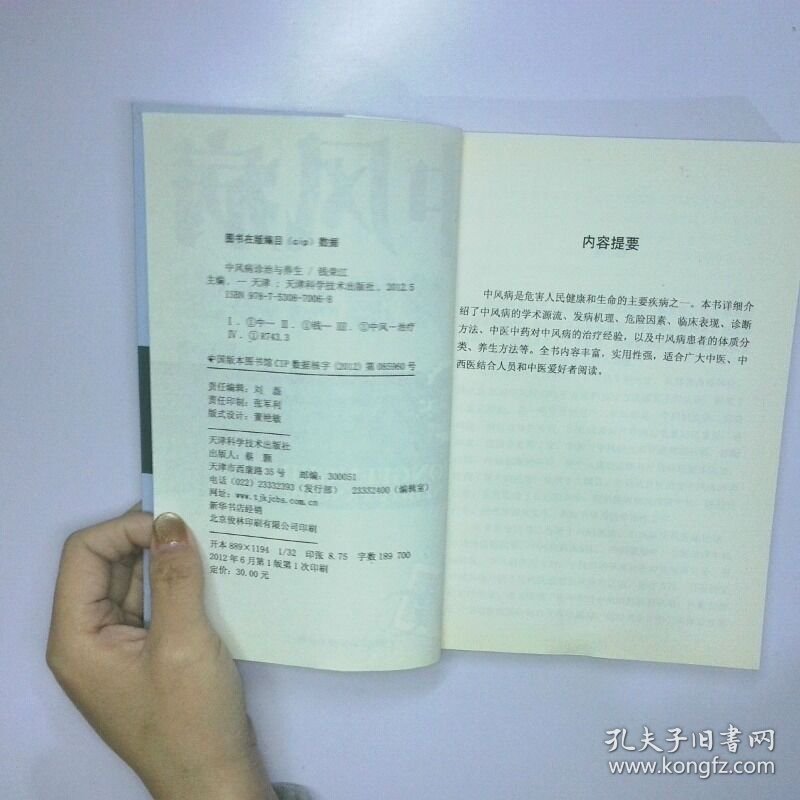 图书在版编目（cip）数据
中风病诊治与养生 / 钱荣江
主编. 一 天津 : 天津科学技术出版社, 2012.5
ISBN 978-7-5308-7006-8
Ⅰ. ①中… Ⅱ. ①钱… Ⅲ. ①中风—治疗
Ⅳ. ①R743.3
中国版本图书馆CIP数据核字（2012）第085960号
责任编辑：刘 磊
责任印制：张军利
版式设计：董艳敏
天津科学技术出版社
出版人：蔡 颢
天津市西康路35号 邮编：300051
电话（022）23332393（发行部） 23332400（编辑室）
网址：www.tjkjcbs.com.cn
新华书店经销
北京俊林印刷有限公司印刷
开本 889×1194 1/32 印张 8.75 字数 189 700
2012年6月第1版第1次印刷
定价：30.00元
内容提要
中风病是危害人民健康和生命的主要疾病之一。本书详细介
绍了中风病的学术源流、发病机理、危险因素、临床表现、诊断
方法、中医中药对中风病的治疗经验，以及中风病患者的体质分
类、养生方法等。全书内容丰富，实用性强，适合广大中医、中
西医结合人员和中医爱好者阅读。
孔夫子旧书网
www.kongfz.com